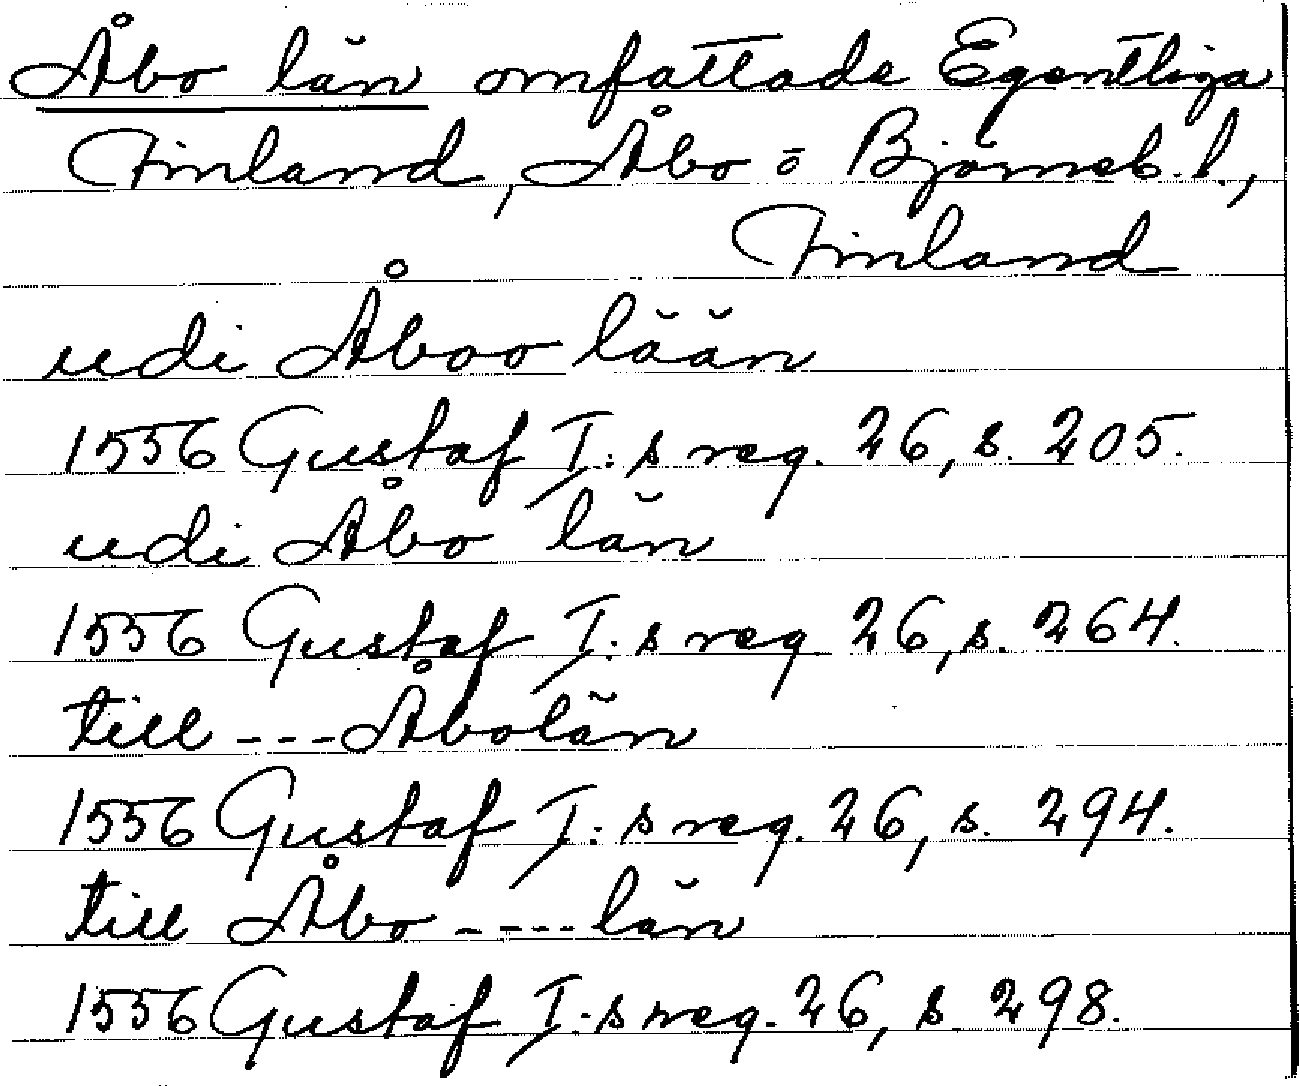 Åbo län omfattade Egentliga
Finland, Åbo o Björneb. l.,
Finland
udi Åboo lään
1556 Gustaf I:s reg. 26, s. 205.
udi Åbo län
1556 Gustaf I:s reg 26, s. 264.
till ---Åbolän
1556 Gustaf I:s reg. 26, s. 294.
till Åbo ----län
1556 Gustaf I:s reg. 26, s 298.